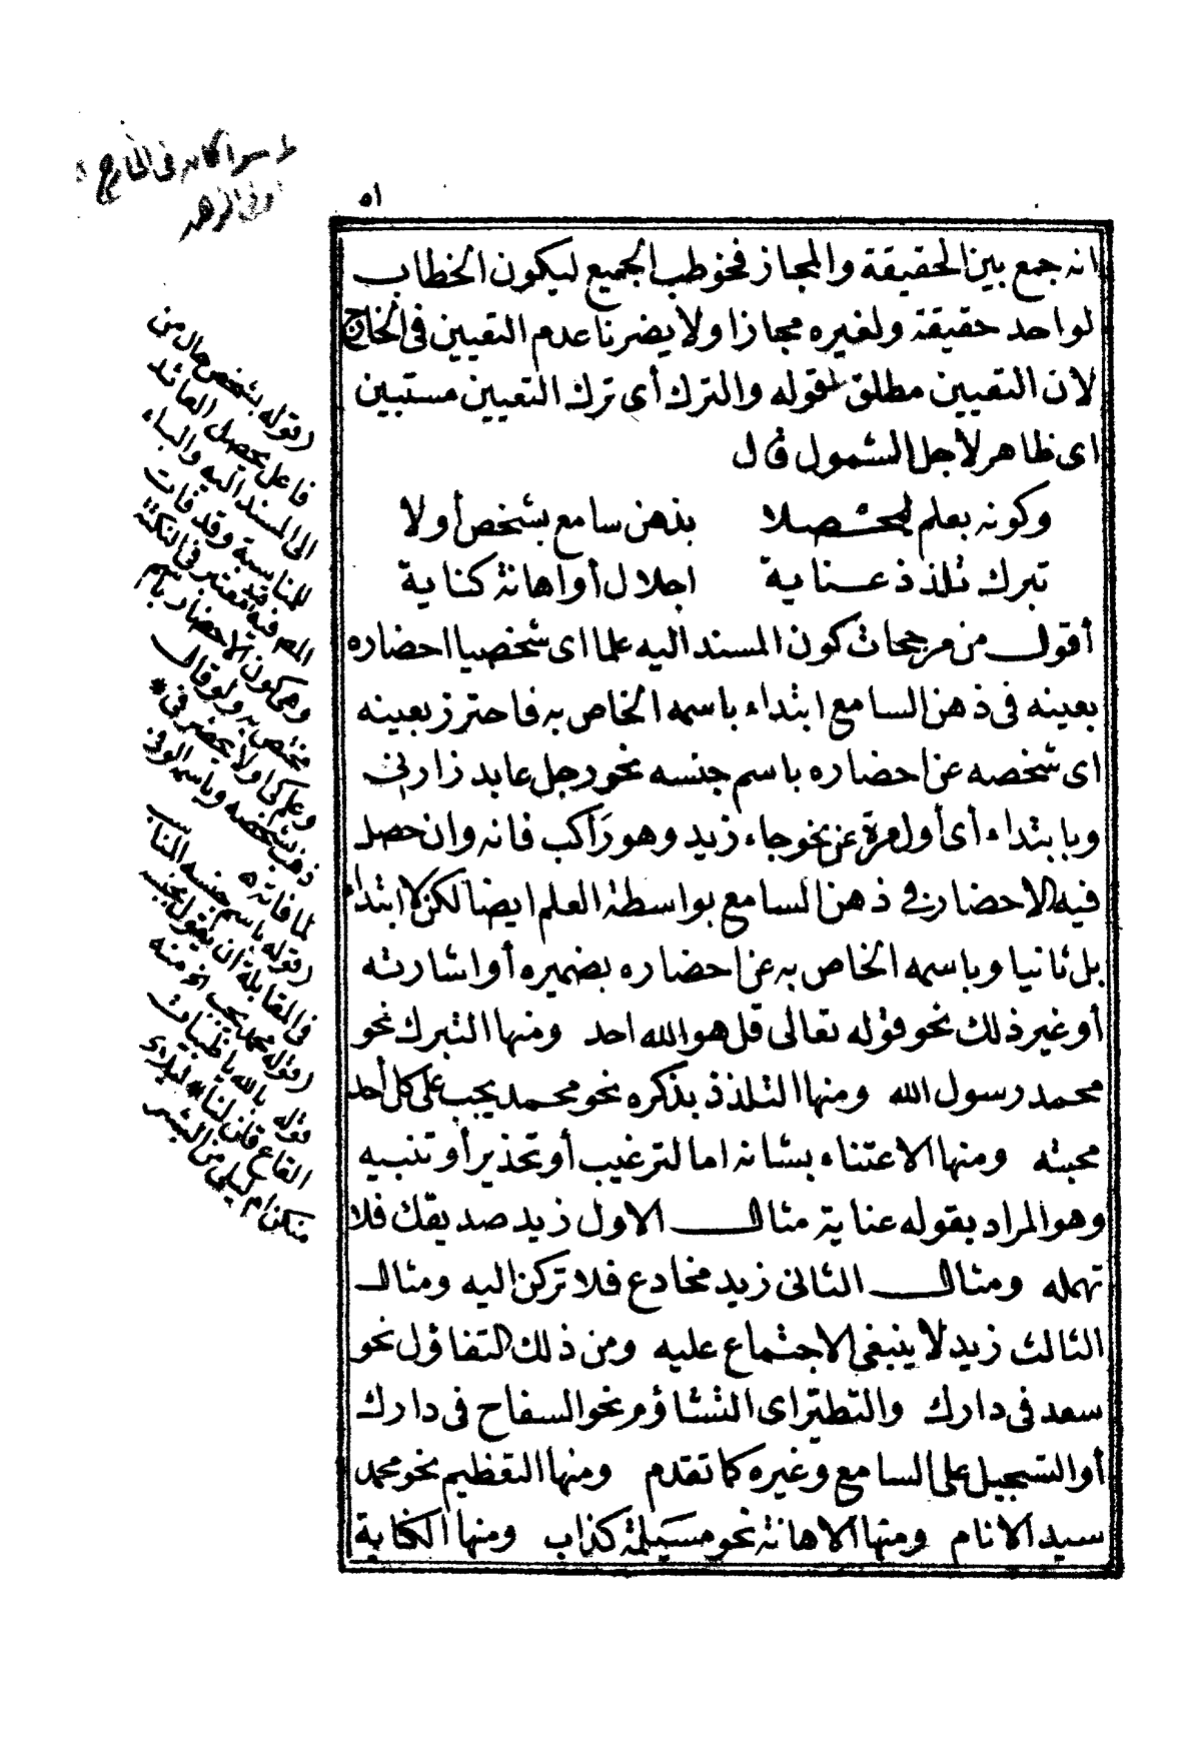 ٥١
انه جمع بين الحقيقة والمجاز فخوطب الجميع ليكون الخطاب
لواحد حقيقة ولغيره مجازا ولا يضرنا عدم التعيين في الخارج
لان التعيين مطلق لقوله والترك أى ترك التعيين مستبين
اى ظاهر لأجل الشمول قال
وكونه بعلم ليحصلا بذهن سامع بشخص أولا
تبرك تلذذ عناية اجلال أو اهانة كناية
أقول من مرجحات كون المسند اليه علما اى شخصيا احضاره
بعينه فى ذهن السامع ابتداء باسمه الخاص به فاحترز بعينه
اى شخصه عن احضاره باسم جنسه نحو رجل عابد زارنى
وبابتداء أى أول مرة عن نحو جاء زيد وهو راكب فانه وان حصل
فيه الاحضار فى ذهن السامع بواسطة العلم ايضا لكن لا ابتداء
بل ثانيا وباسمه الخاص به عن احضاره بضميره أو اشارته
أو غير ذلك نحو قوله تعالى قل هو الله احد ومنها التبرك نحو
محمد رسول الله ومنها التلذذ بذكره نحو محمد يجب على كل أحد
محبته ومنها الاعتناء بشانه اما لترغيب أو تحذير أو تنبيه
وهو المراد بقوله عناية مثال الاول زيد صديقك فلا
تهمله ومثال الثانى زيد مخادع فلا تركن اليه ومثال
الثالث زيد لا ينبغى الاجتماع عليه ومن ذلك التفاؤل نحو
سعد فى دارك والتطير اى التشاؤم نحو السفاح فى دارك
أو التسجيل على السامع وغيره كما تقدم ومنها التعظيم نحو محمد
سيد الانام ومنها الاهانة نحو مسيلمة كذاب ومنها الكناية
(قوله بشخص حال من
فاعل يحصل العائد
الى المسند اليه والباء
للمناسبة وقد فات
وهى كون الاحضار باسم
مختص به ولو قال
وعلم كى اولا يحضر فى *
ذهن بشخصه وباسمه الوفى
لما فاته ه
(قوله باسم جنسه المناسب
فى المقابلة ان يقول بجنسه
(قوله محمد يجب الخ ومنه
قوله بالله يا ظبيات
القاع قلن لنا * ليلاى
منكن ام ليلى من البشر